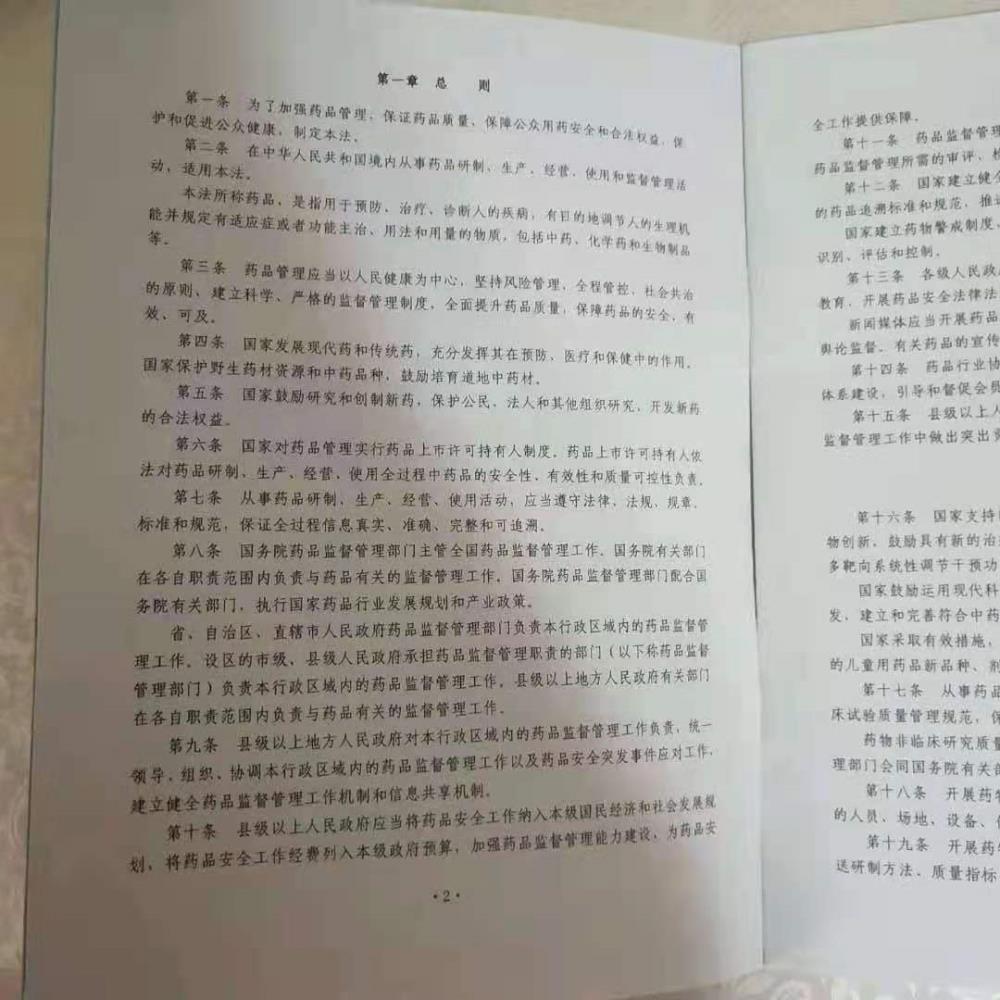 第一章 总 则
第一条 为了加强药品管理，保证药品质量，保障公众用药安全和合法权益，保
护和促进公众健康，制定本法。
第二条 在中华人民共和国境内从事药品研制、生产、经营、使用和监督管理活
动，适用本法。
本法所称药品，是指用于预防、治疗、诊断人的疾病，有目的地调节人的生理机
能并规定有适应症或者功能主治、用法和用量的物质，包括中药、化学药和生物制品
等。
第三条 药品管理应当以人民健康为中心，坚持风险管理、全程管控、社会共治
的原则，建立科学、严格的监督管理制度，全面提升药品质量，保障药品的安全、有
效、可及。
第四条 国家发展现代药和传统药，充分发挥其在预防、医疗和保健中的作用。
国家保护野生药材资源和中药品种，鼓励培育道地中药材。
第五条 国家鼓励研究和创制新药，保护公民、法人和其他组织研究、开发新药
的合法权益。
第六条 国家对药品管理实行药品上市许可持有人制度。药品上市许可持有人依
法对药品研制、生产、经营、使用全过程中药品的安全性、有效性和质量可控性负责。
第七条 从事药品研制、生产、经营、使用活动，应当遵守法律、法规、规章、
标准和规范，保证全过程信息真实、准确、完整和可追溯。
第八条 国务院药品监督管理部门主管全国药品监督管理工作。国务院有关部门
在各自职责范围内负责与药品有关的监督管理工作。国务院药品监督管理部门配合国
务院有关部门，执行国家药品行业发展规划和产业政策。
省、自治区、直辖市人民政府药品监督管理部门负责本行政区域内的药品监督管
理工作。设区的市级、县级人民政府承担药品监督管理职责的部门（以下称药品监督
管理部门）负责本行政区域内的药品监督管理工作。县级以上地方人民政府有关部门
在各自职责范围内负责与药品有关的监督管理工作。
第九条 县级以上地方人民政府对本行政区域内的药品监督管理工作负责，统一
领导、组织、协调本行政区域内的药品监督管理工作以及药品安全突发事件应对工作，
建立健全药品监督管理工作机制和信息共享机制。
第十条 县级以上人民政府应当将药品安全工作纳入本级国民经济和社会发展规
划，将药品安全工作经费列入本级政府预算，加强药品监督管理能力建设，为药品安
·2·
全工作提供保障。
第十一条 药品监督管理
药品监督管理所需的审评、检
第十二条 国家建立健全
的药品追溯标准和规范，推进
国家建立药物警戒制度，
识别、评估和控制。
第十三条 各级人民政府
教育，开展药品安全法律法
新闻媒体应当开展药品
舆论监督。有关药品的宣传
第十四条 药品行业协
体系建设，引导和督促会员
第十五条 县级以上人
监督管理工作中做出突出贡
第十六条 国家支持以
物创新，鼓励具有新的治疗
多靶向系统性调节干预功
国家鼓励运用现代科
发，建立和完善符合中药
国家采取有效措施，
的儿童用药品新品种、剂
第十七条 从事药品
床试验质量管理规范，保
药物非临床研究质量
理部门会同国务院有关部
第十八条 开展药物
的人员、场地、设备、仪
第十九条 开展药物
送研制方法、质量指标